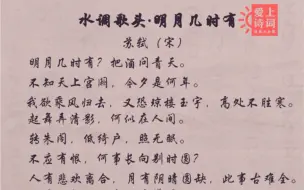 水调歌头·明月几时有
爱上
诗词
苏轼（宋）
明月几时有？把酒问青天。
不知天上宫阙，今夕是何年。
我欲乘风归去，又恐琼楼玉宇，高处不胜寒。
起舞弄清影，何似在人间。
转朱阁，低绮户，照无眠。
不应有恨，何事长向别时圆？
人有悲欢离合，月有阴晴圆缺，此事古难全。